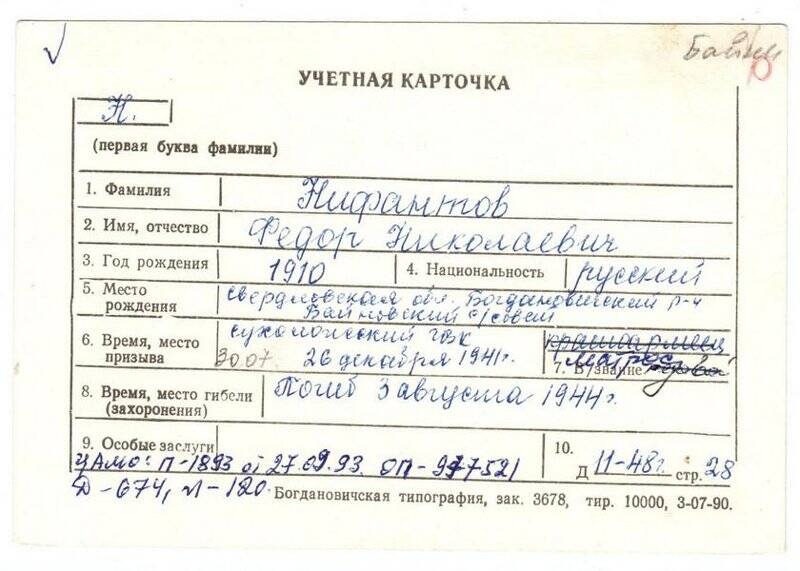 УЧЕТНАЯ КАРТОЧКА
Н.
(первая буква фамилии)
1. Фамилия Нифантов
2. Имя, отчество Федор Николаевич
3. Год рождения 1910 4. Национальность русский
5. Место рождения Свердловская обл. Богдановичский р-н
Байновский с/совет
6. Время, место призыва Сухоложский гвк красноармеец
30.07 26 декабря 1941г. матрос
7. В/звание рядовой
8. Время, место гибели (захоронения) Погиб 3 августа 1944г.
9. Особые заслуги 10.
ЦАМО: П-1893 от 27.09.93. ОП-977521 Д 11-48г стр. 28
Д-674, л-120. Богдановичская типография, зак. 3678, тир. 10000, 3-07-90.